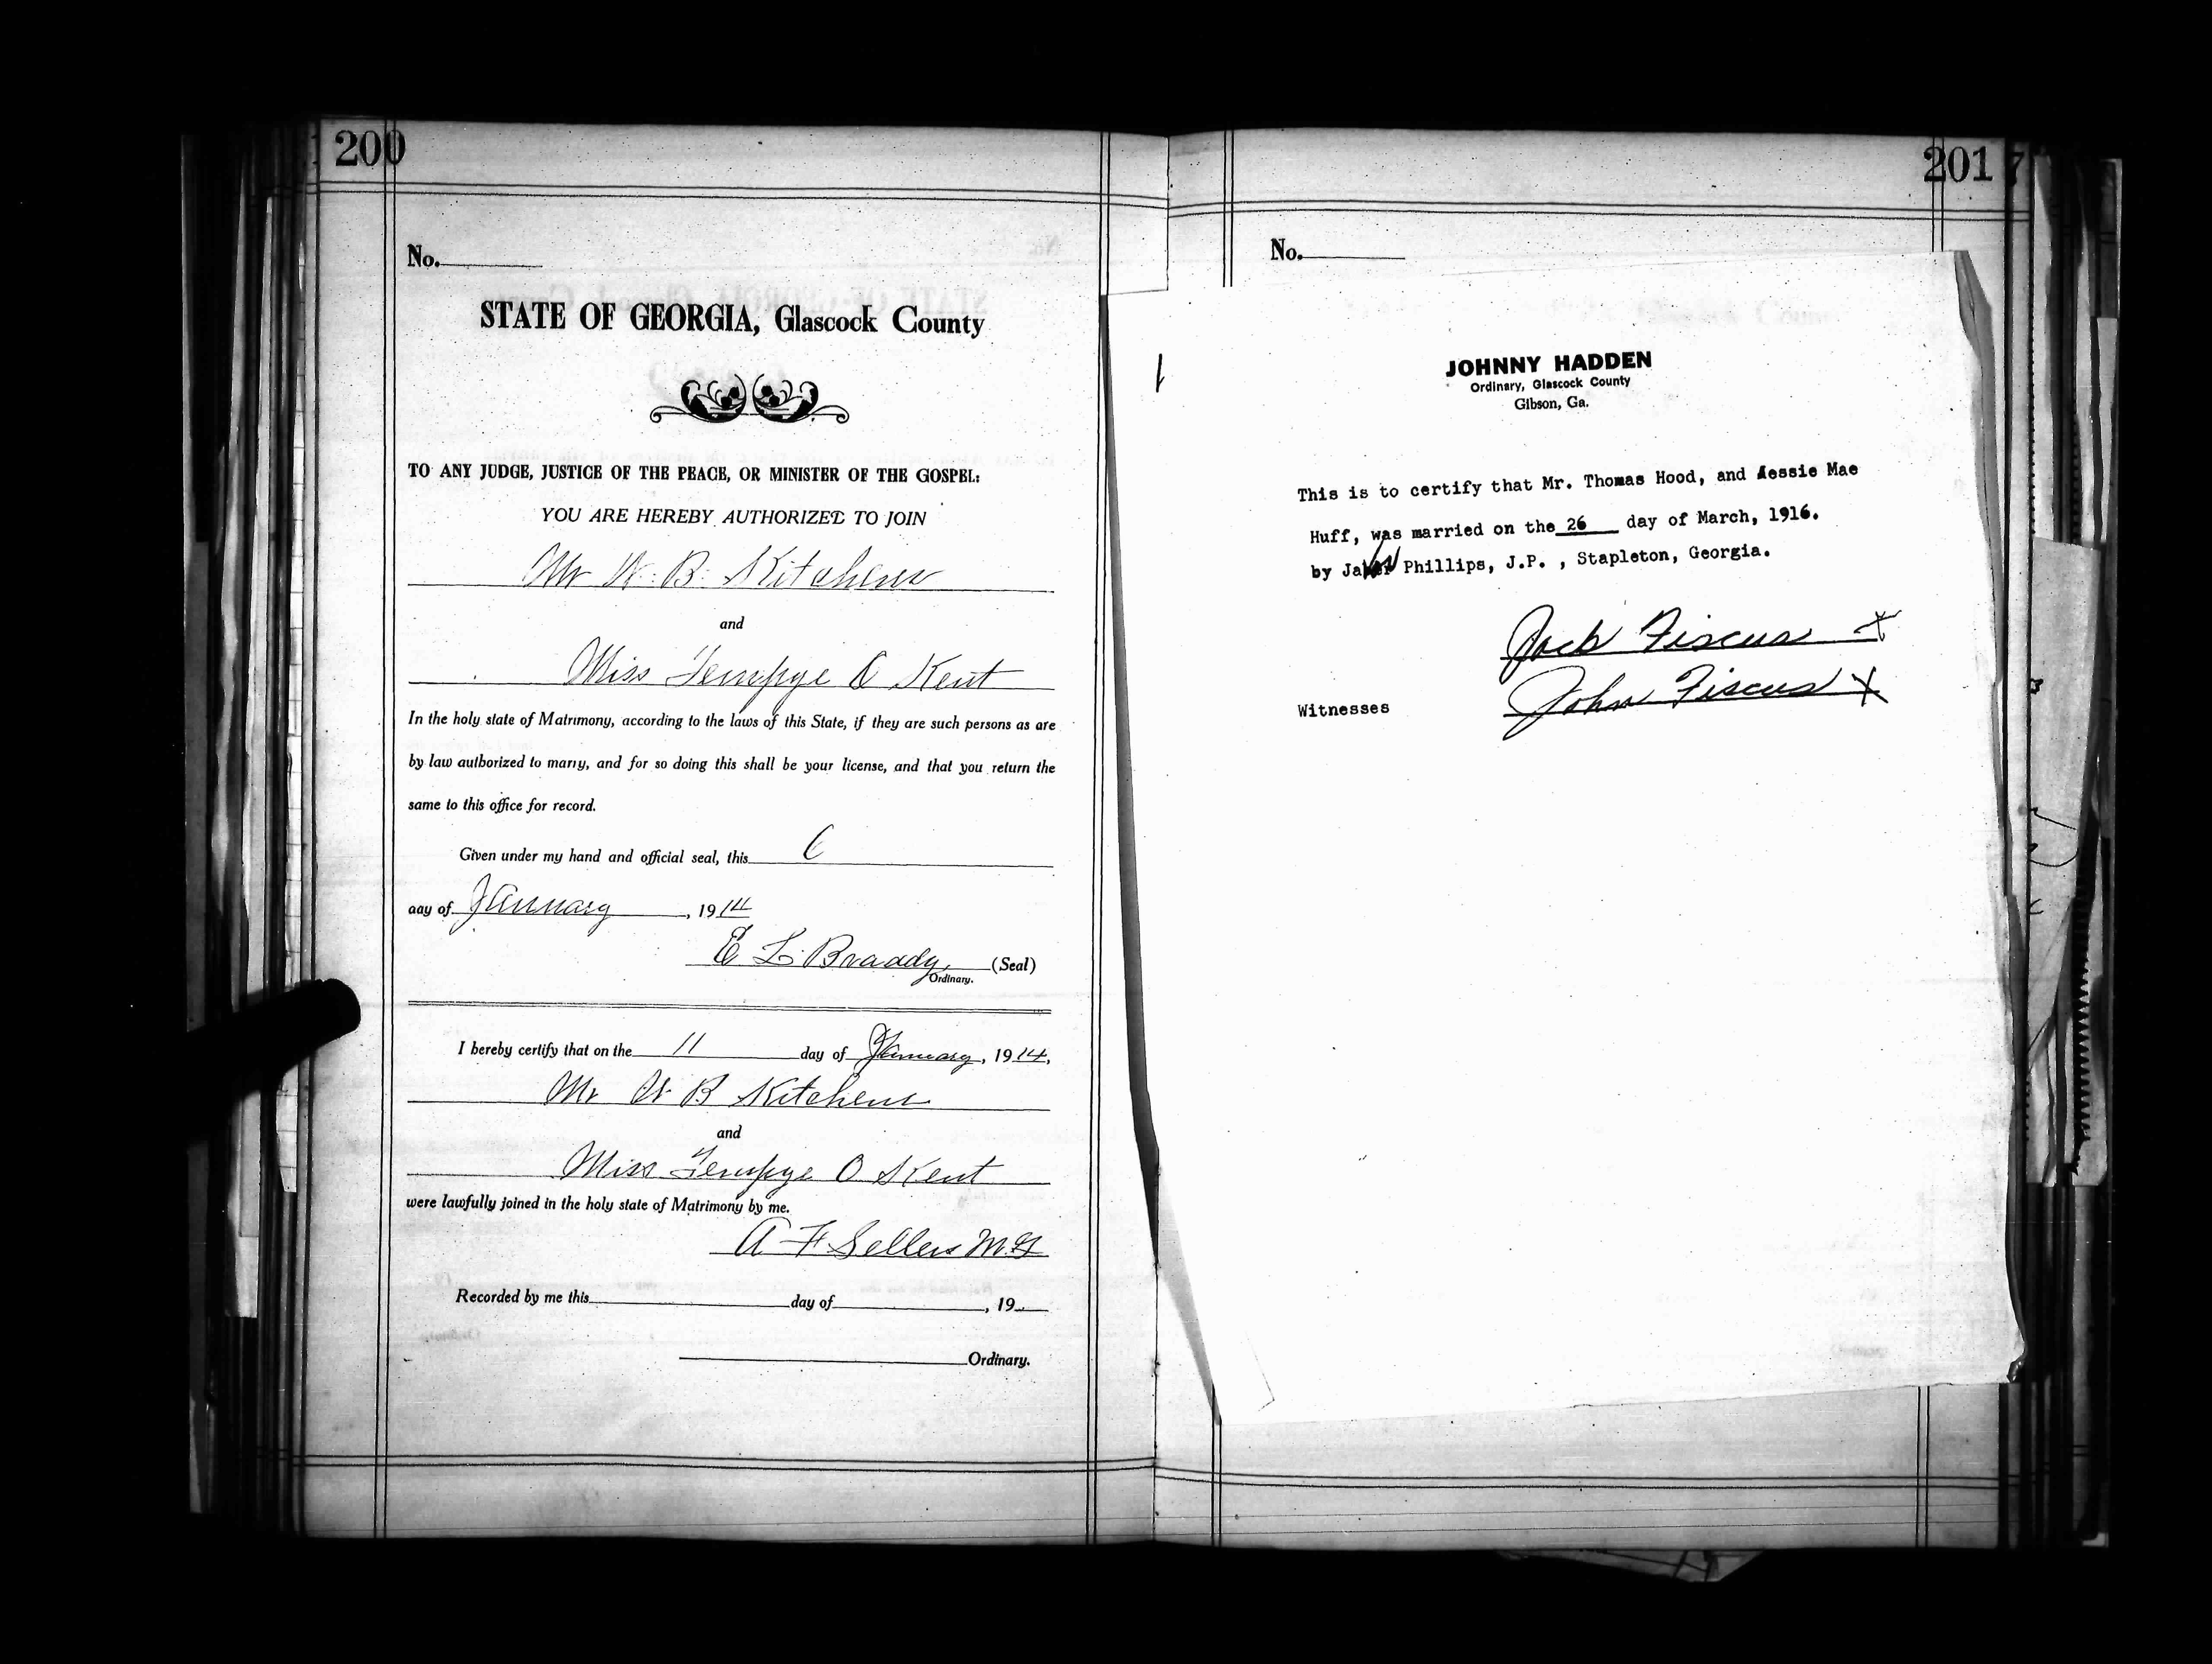 200
No.
STATE OF GEORGIA, Glascock County
TO ANY JUDGE, JUSTICE OF THE PEACE, OR MINISTER OF THE GOSPEL:
YOU ARE HEREBY AUTHORIZED TO JOIN
Mr W. B. Kitchens
and
Miss Tempye O Kent
In the holy state of Matrimony, according to the laws of this State, if they are such persons as are
by law authorized to marry, and for so doing this shall be your license, and that you return the
same to this office for record.
Given under my hand and official seal, this 6
day of January, 1914
E L Braddy (Seal)
Ordinary.
I hereby certify that on the 11 day of January, 1914,
Mr W B Kitchens
and
Miss Tempye O Kent
were lawfully joined in the holy state of Matrimony by me.
A F Sellers M.G
Recorded by me this day of , 19
Ordinary.
201
No.
JOHNNY HADDEN
Ordinary, Glascock County
Gibson, Ga.
This is to certify that Mr. Thomas Hood, and Mae
Huff, was married on the 26 day of March, 1916.
by Phillips, J.P. , Stapleton, Georgia.
Jack Fiscus X
John Fiscus X
Witnesses